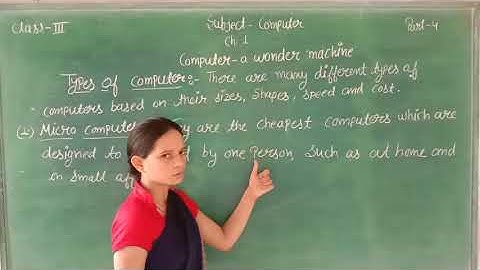 Class-III
Subject- Computer
Part-4
Ch 1
Computer-a wonder machine
Types of computer:- There are many different types of
computers based on their sizes, Shapes, speed and cost.
(1) Micro computer y are the cheapest computers which are
designed to by one Person, Such as at home and
in small